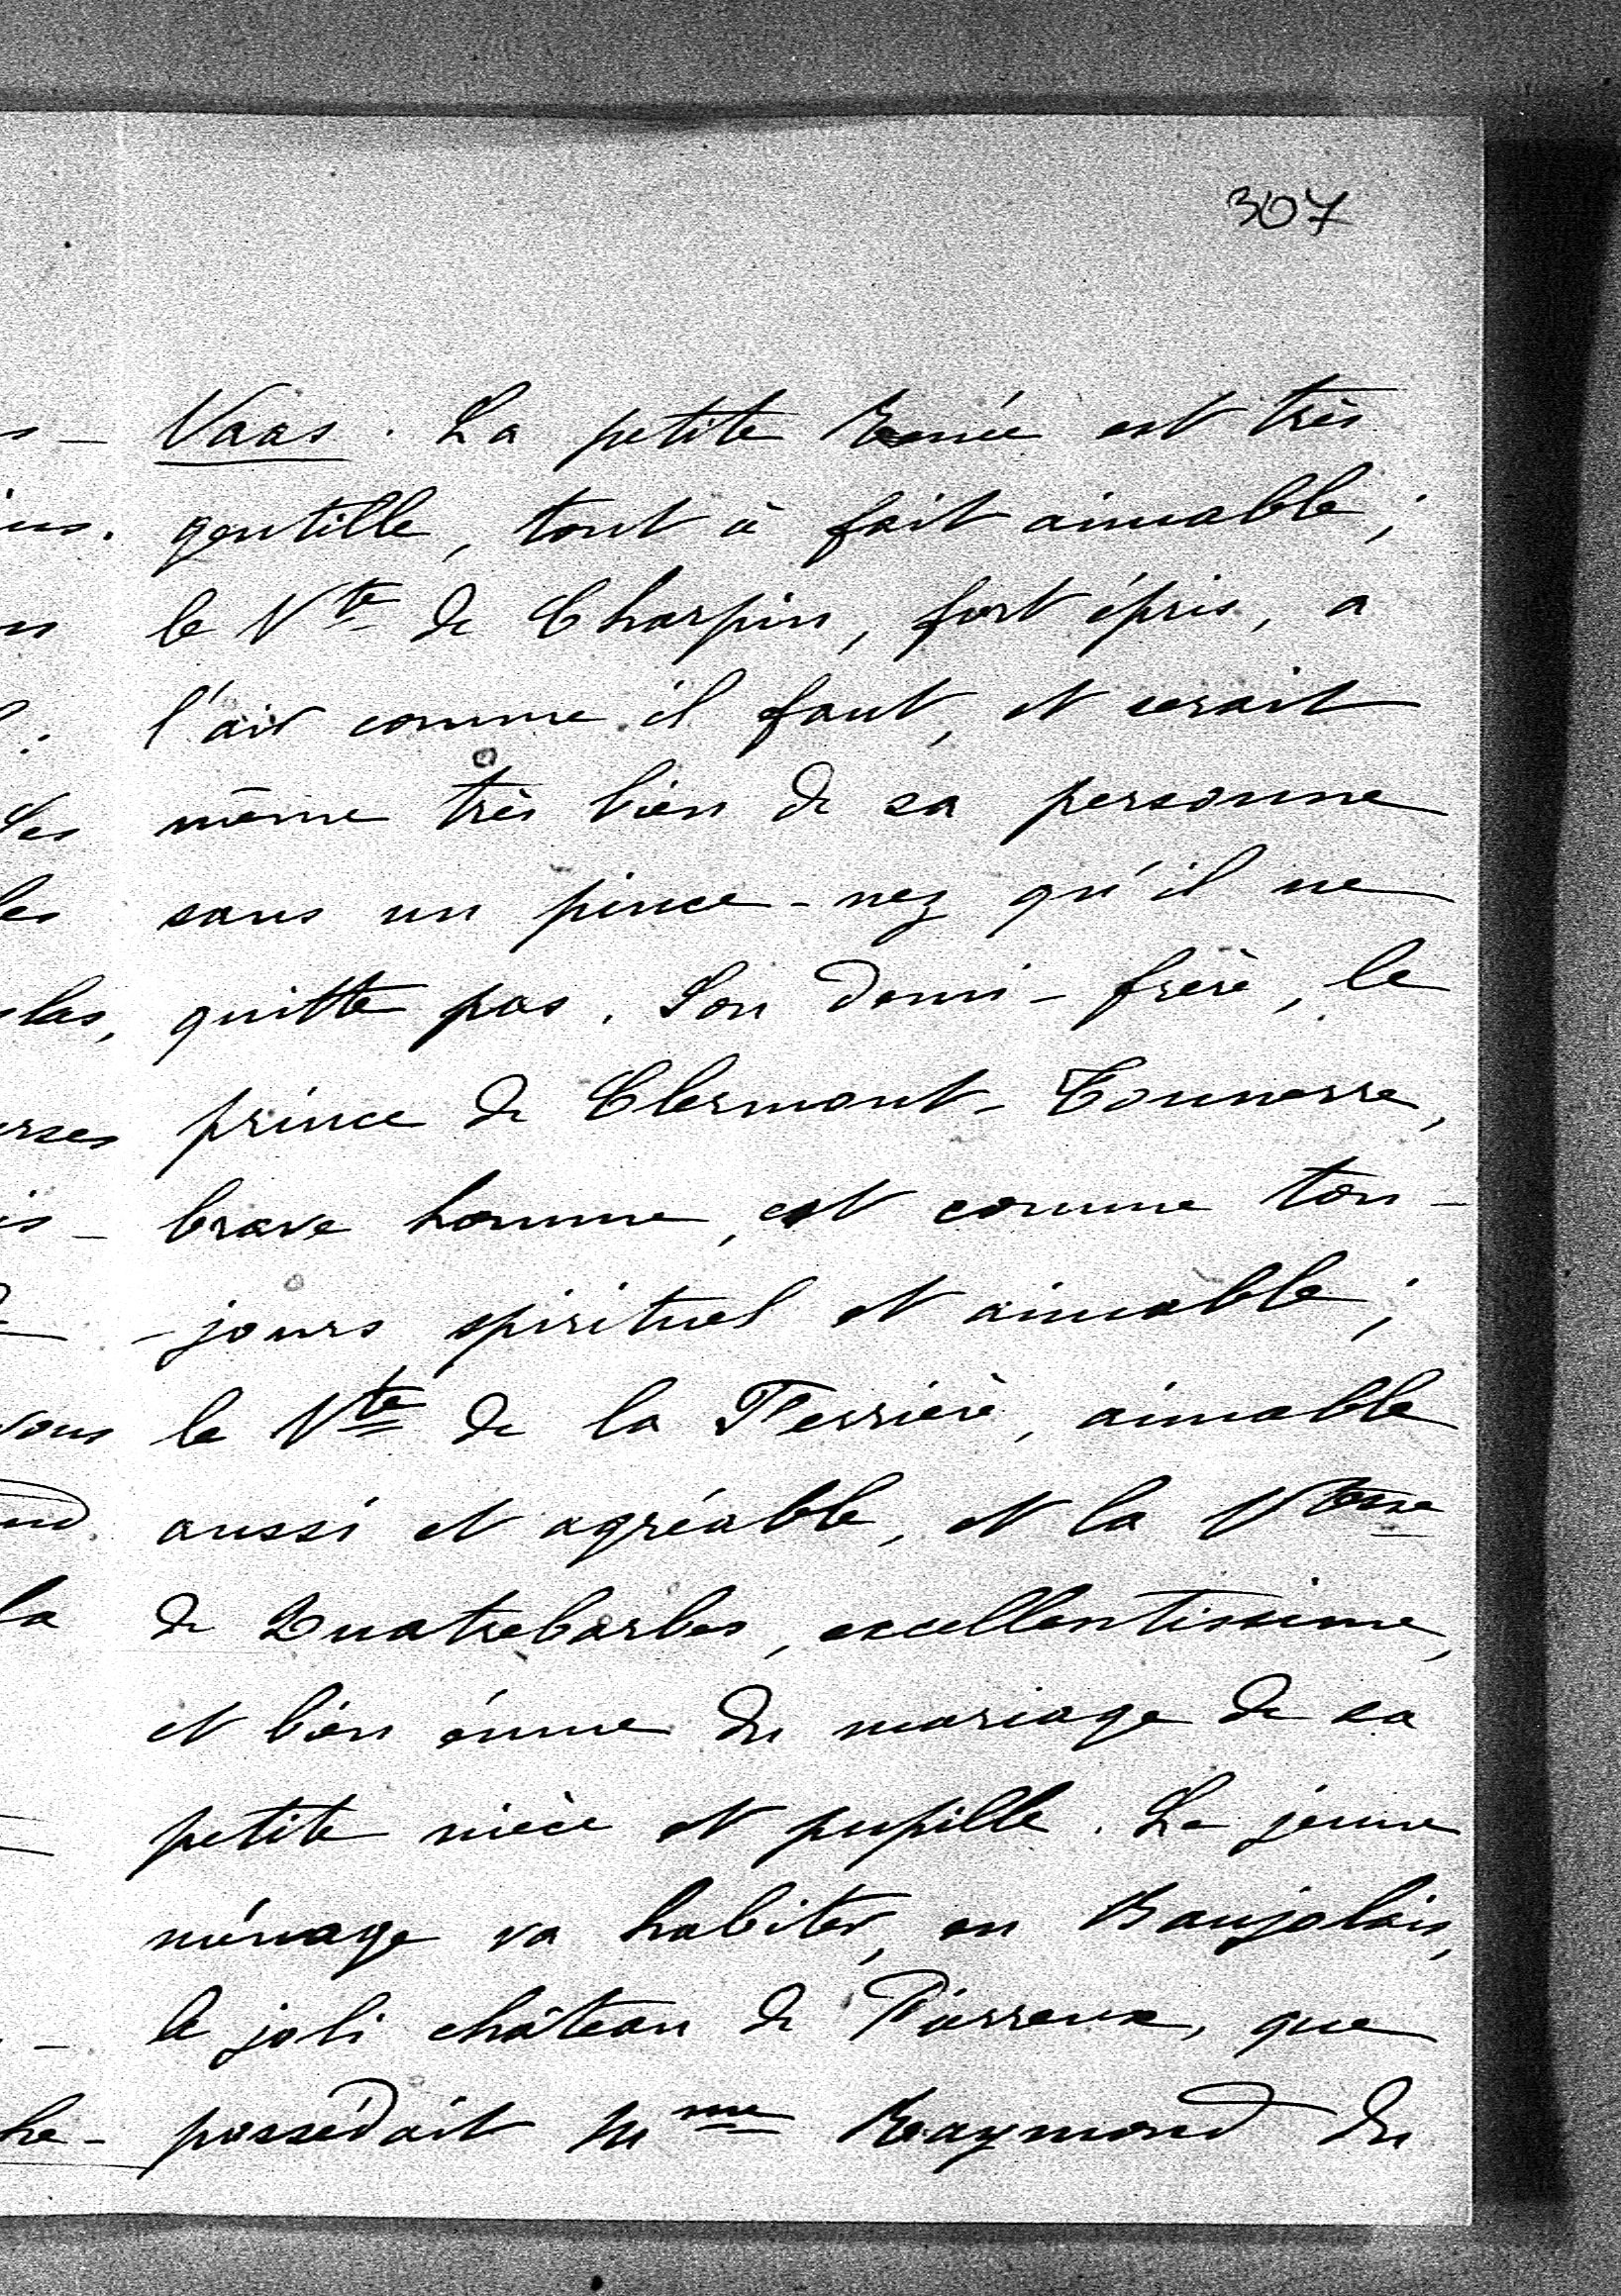 307
Vaas. La petite Renée est très
gentille, tout à fait aimable;
le Vte de Charpin, fort épris, a
l'air comme il faut, et serait
même très bien de sa personne
sans un pince-nez qu'il ne
quitte pas. Son demi-frère, le
prince de Clermont-Tonnerre,
brave homme, est comme tou-
-jours spirituel et aimable;
le Vte de la Ferrière, aimable
aussi et agréable, et la Vtesse
de Quatrebarbes, excellentissime,
et bien émue du mariage de sa
petite nièce et pupille. Le jeune
ménage va habiter, en Baujolais,
le joli château de Pierreux, que
possédait Mme Raymond du